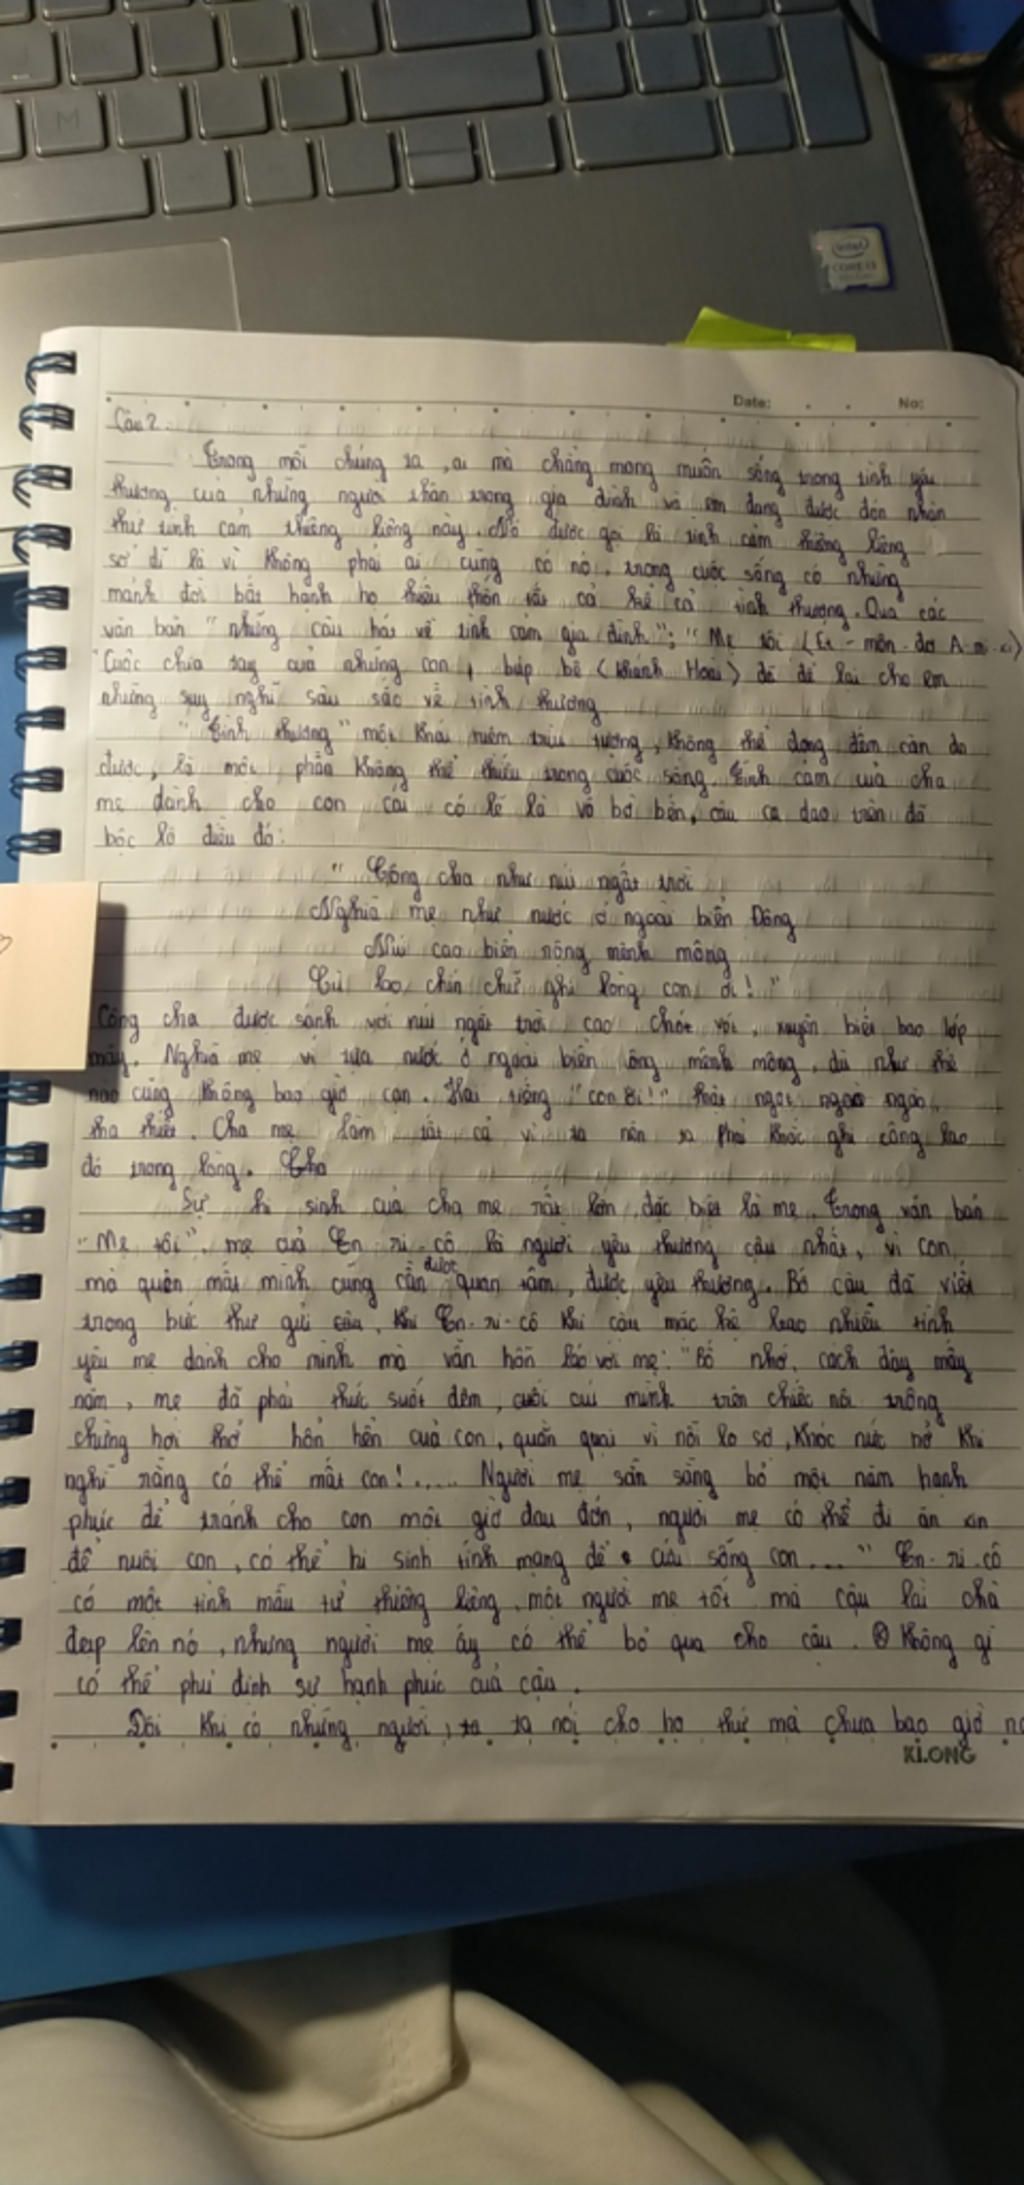 M
intel
CORE i3
Date:
No:
Câu 2:
Trong mỗi chúng ta, ai mà chẳng mong muốn sống trong tình yêu
thương của những người thân trong gia đình và em đang được đón nhận
thứ tình cảm thiêng liêng này. Nó được gọi là tình cảm thiêng liêng
sở dĩ là vì không phải ai cũng có nó, trong cuộc sống có những
mảnh đời bất hạnh họ thiếu thốn tất cả kể cả tình thương. Qua các
văn bản "những câu hát về tình cảm gia đình"; "Mẹ tôi (Ét-môn-đơ A-mi-xi)
"Cuộc chia tay của những con búp bê (Khánh Hoài) đã để lại cho em
những suy nghĩ sâu sắc về tình thương
"Tình thương" một khái niệm trừu tượng, không thể đong đếm cân đo
được, là một phần không thể thiếu trong cuộc sống. Tình cảm của cha
mẹ dành cho con cái có lẽ là vô bờ bến, câu ca dao trên đã
bộc lộ điều đó:
"Công cha như núi ngất trời
Nghĩa mẹ như nước ở ngoài biển Đông
Núi cao biển rộng mênh mông
Cù lao chín chữ ghi lòng con ơi!"
Công cha được sánh với núi ngất trời cao chót vót, xuyên biết bao lớp
mây. Nghĩa mẹ ví tựa nước ở ngoài biển rộng mênh mông, dù như thế
nào cũng không bao giờ cạn. Hai tiếng "con ơi!" thật ngọt ngào
tha thiết. Cha mẹ làm tất cả vì ta nên ta phải khắc ghi công lao
đó trong lòng. Cho
Sự hi sinh của cha mẹ rất lớn, đặc biệt là mẹ. Trong văn bản
"Mẹ tôi", mẹ của En-ri-cô là người yêu thương cậu nhất, vì con
mà quên mất mình cũng cần được quan tâm, được yêu thương. Bố cậu đã viết
trong bức thư gửi cậu, khi En-ri-cô khi cậu mặc kệ bao nhiêu tình
yêu mẹ dành cho mình mà vẫn hỗn láo với mẹ: "Bố nhớ, cách đây mấy
năm, mẹ đã phải thức suốt đêm, cúi mình trên chiếc nôi trông
chừng hơi thở hổn hển của con, quằn quại vì nỗi lo sợ, khóc nức nở khi
nghĩ rằng có thể mất con!..... Người mẹ sẵn sàng bỏ một năm hạnh
phúc để tránh cho con một giờ đau đớn, người mẹ có thể đi ăn xin
để nuôi con, có thể hi sinh tính mạng để cứu sống con..." En-ri-cô
có một tình mẫu tử thiêng liêng, một người mẹ tốt mà cậu lại chà
đạp lên nó, nhưng người mẹ ấy có thể bỏ qua cho cậu. Không gì
có thể phủ định sự hạnh phúc của cậu.
Đôi khi có những người, ta ta nói cho họ thứ mà chưa bao giờ
KLONG